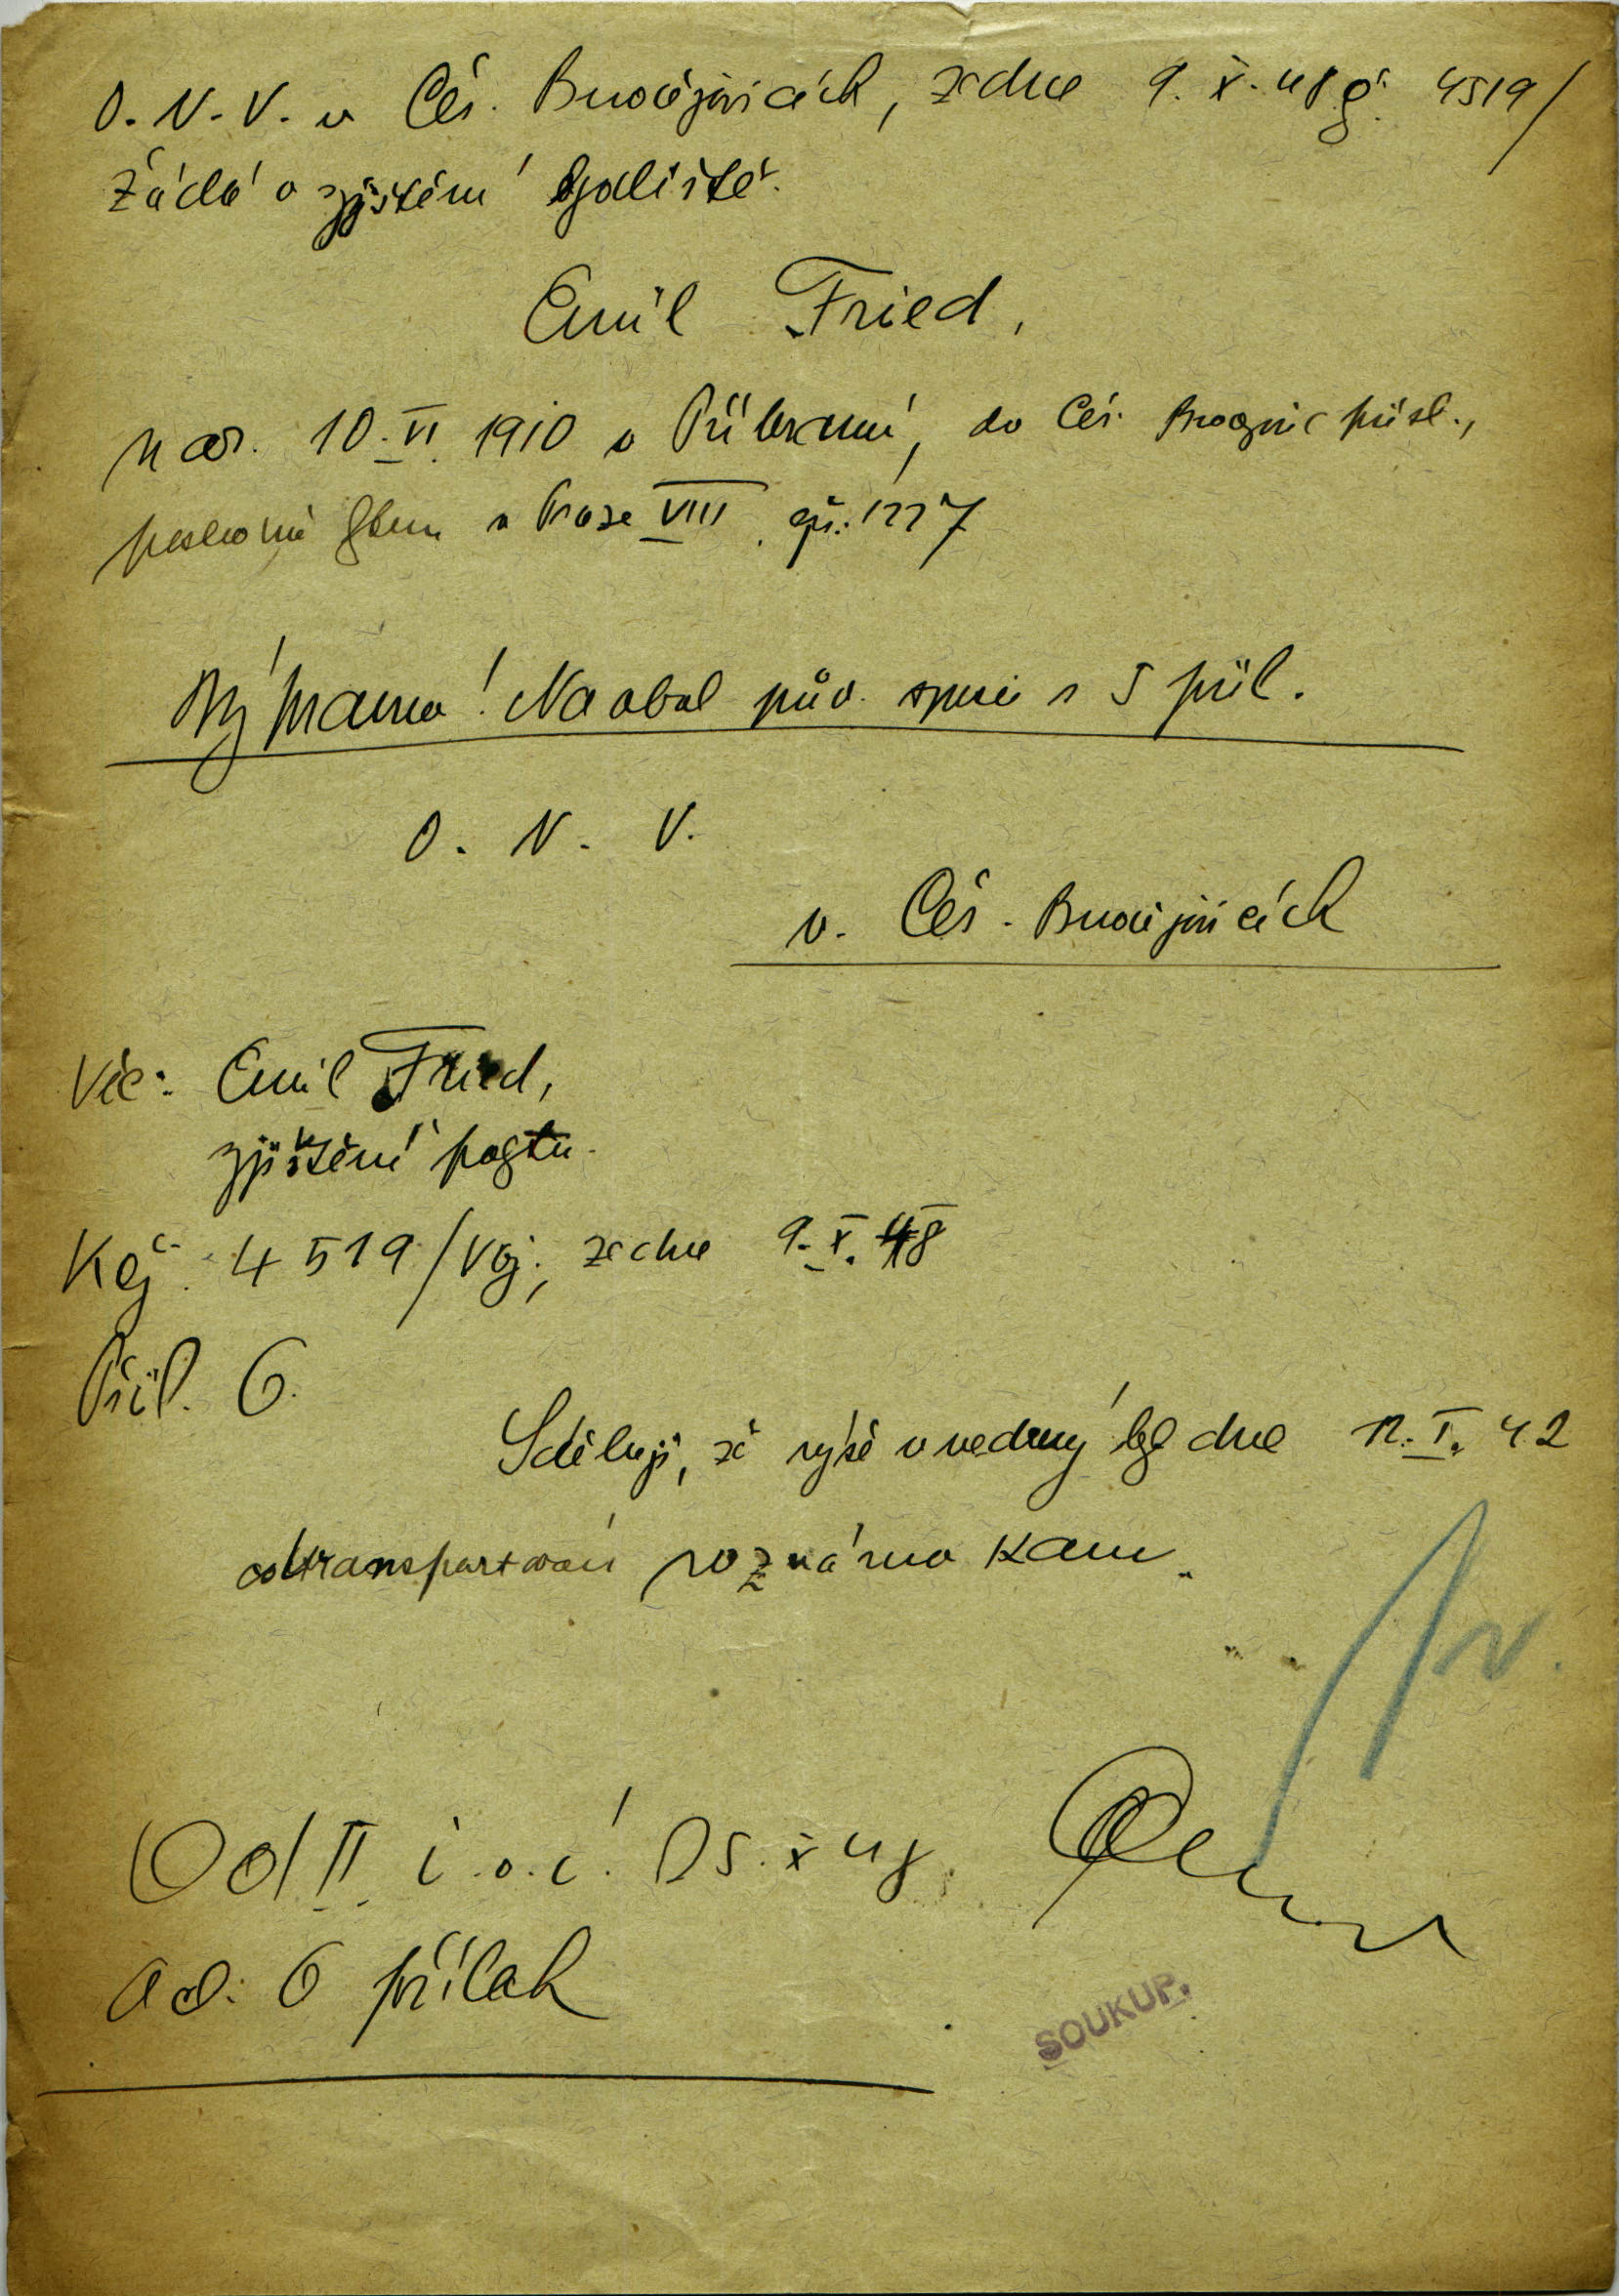 O. N. V. v Čes. Budějovicích, ze dne 9. X. 48 č. 4519/
žádá o zjištění bydliště.
Emil Fried,
nar. 10. VI. 1910 v Příbrami, do Čes. Budějovic přísl.,
posledně bytem v Praze VIII. čp.: 1227
Na obal pův. spisu s 5 příl.
O. N. V.
v. Čes. Budějovicích
Věc: Emil Fried,
zjištění pobytu.
K čj. 4519/Voj., ze dne 9. X. 48
Příl. 6.
Sděluji, že výše uvedený byl dne 12. I. 42
odtransportován neznámo kam.
Od II. X 48
6 příloh
SOUKUP.